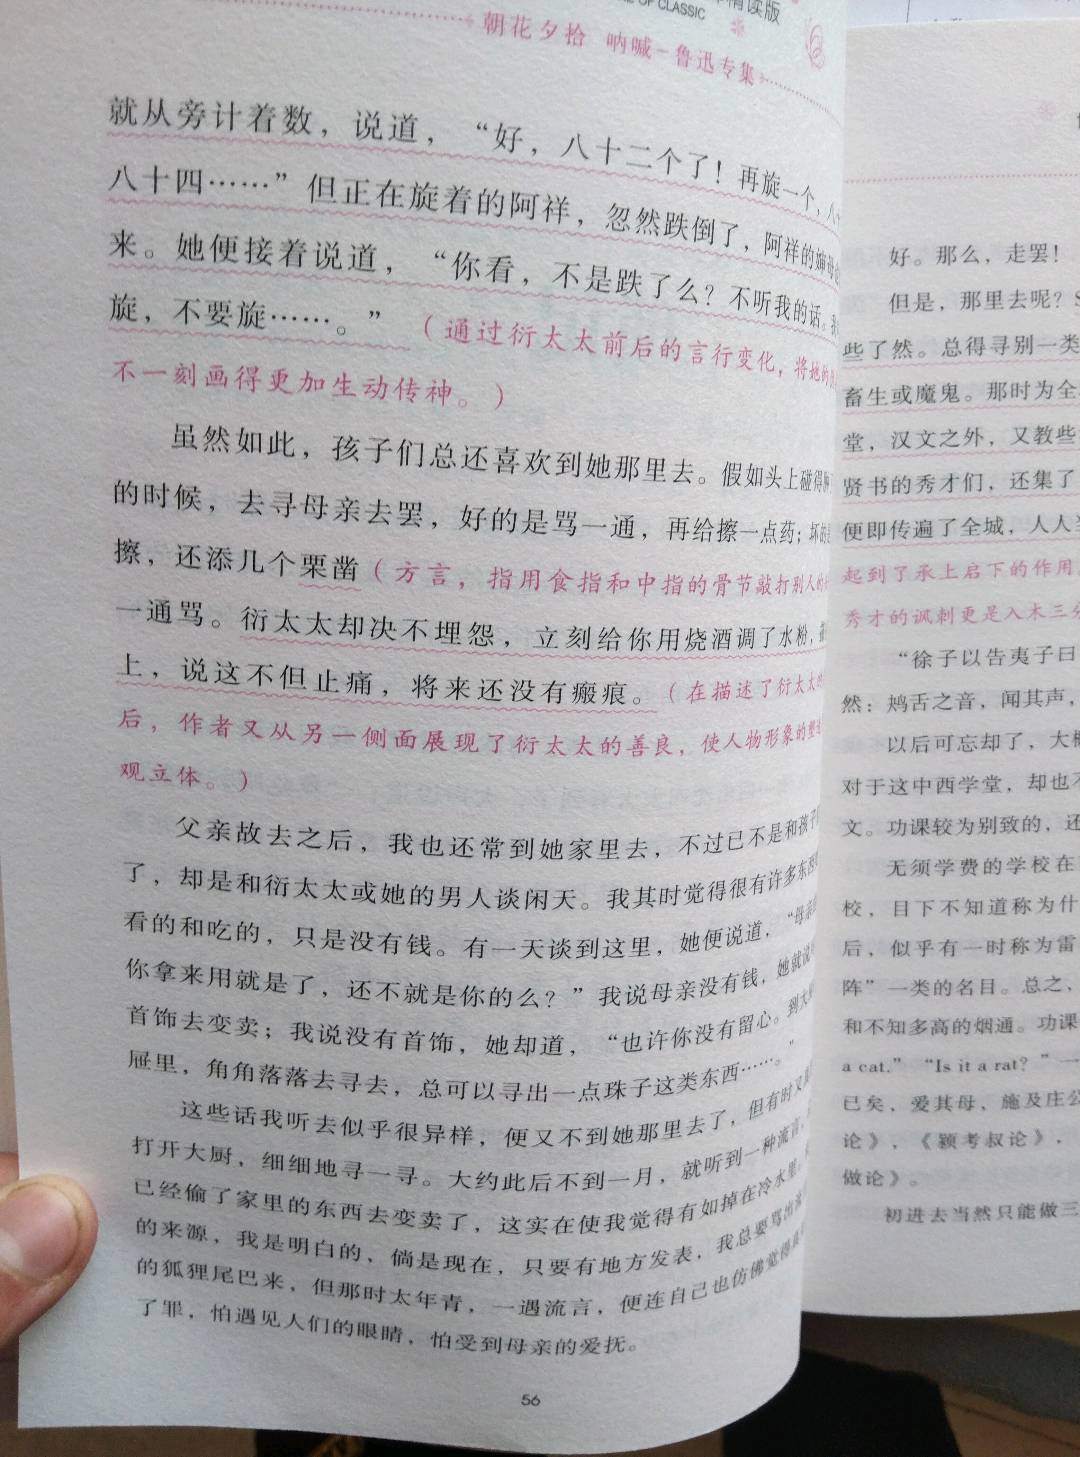 精读版
OF CLASSIC
朝花夕拾 呐喊-鲁迅专集
就从旁计着数，说道，“好，八十二个了！再旋一个，八
八十四……”但正在旋着的阿祥，忽然跌倒了，阿祥的婶母
来。她便接着说道，“你看，不是跌了么？不听我的话。我
旋，不要旋……。”（通过衍太太前后的言行变化，将她的
不一刻画得更加生动传神。）
虽然如此，孩子们总还喜欢到她那里去。假如头上碰得肿
的时候，去寻母亲去罢，好的是骂一通，再给擦一点药；坏的是
擦，还添几个栗凿（方言，指用食指和中指的骨节敲打别人的
一通骂。衍太太却决不埋怨，立刻给你用烧酒调了水粉，
上，说这不但止痛，将来还没有瘢痕。（在描述了衍太太的
后，作者又从另一侧面展现了衍太太的善良，使人物形象的塑造
观立体。）
父亲故去之后，我也还常到她家里去，不过已不是和孩子
了，却是和衍太太或她的男人谈闲天。我其时觉得很有许多东西
看的和吃的，只是没有钱。有一天谈到这里，她便说道，“母亲
你拿来用就是了，还不就是你的么？”我说母亲没有钱，她就说
首饰去变卖；我说没有首饰，她却道，“也许你没有留心。到大
屉里，角角落落去寻去，总可以寻出一点珠子这类东西……。”
这些话我听去似乎很异样，便又不到她那里去了，但有时又
打开大厨，细细地寻一寻。大约此后不到一月，就听到一种流言，
已经偷了家里的东西去变卖了，这实在使我觉得有如掉在冷水里。
的来源，我是明白的，倘是现在，只要有地方发表，我总要骂出流
的狐狸尾巴来，但那时太年青，一遇流言，便连自己也仿佛觉得
了罪，怕遇见人们的眼睛，怕受到母亲的爱抚。
56
好。那么，走罢！
但是，那里去呢？S
些了然。总得寻别一类
畜生或魔鬼。那时为全
堂，汉文之外，又教些
贤书的秀才们，还集了
便即传遍了全城，人人
起到了承上启下的作用，
秀才的讽刺更是入木三分
“徐子以告夷子曰
然：鸩舌之音，闻其声，
以后可忘却了，大概
对于这中西学堂，却也不
文。功课较为别致的，还
无须学费的学校在
校，目下不知道称为什
后，似乎有一时称为雷
阵”一类的名目。总之，
和不知多高的烟通。功课
a cat.”“Is it a rat？”一
已矣，爱其母，施及庄公
论》，《颖考叔论》，
做论》。
初进去当然只能做三